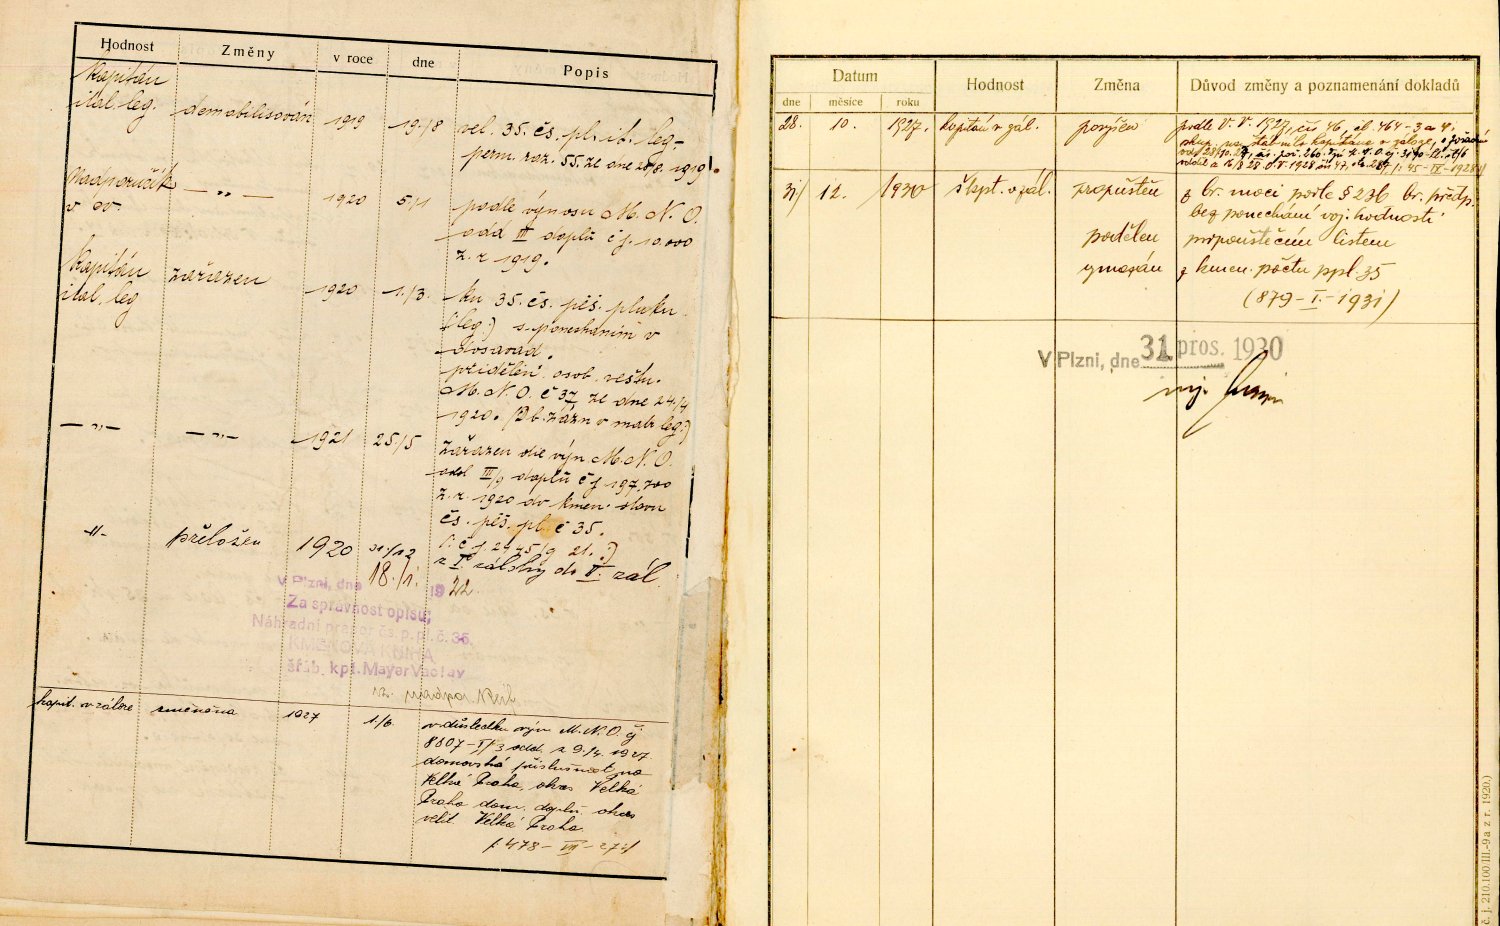 Hodnost Změny v roce dne Popis
Kapitán
ital. leg. demobilisován 1919 19./8 vel. 35. čs. pl. it. leg.
perm. roz. 55. ze dne 20/8. 1919.
Nadporučík — „ — 1920 5./1 podle výnosu M. N. O.
v čv. odd III doplň č j. 10.000
z. r 1919.
Kapitán zařazen 1920 1./3. ku 35. čs. pěš. pluku
ital. leg (leg.) s ponecháním v
dosavad.
přidělení. osob. věstn.
M. N. O. č 37 ze dne 24./4
1920. v matr leg.)
— „ — — „ — 1921 25./5 zařazen dle výn M. N. O.
odd III/9 doplň č j 197.700
z. r. 1920 do kmen. stavu
čs. pěš. pl. č 35.
-„- přeložen 1920 31./12 z I. zálohy do II. zál.
V Plzni, dne 18./1. 1922.
Za správnost opisu:
Náhradní prapor čs. p. pl. č. 35.
KMENOVÁ KNIHA
štáb. kpt. Mayer Václav
kapit. v záloze změněna 1927 1./6 v důsledku výn M. N. O. čj
8607-I/3 odd. z 9./4. 1927
domovská příslušnost na
Velká Praha, okres Velká
Praha dom. doplň. okres
velit. Velká Praha.
(478-VII-27)
Datum Hodnost Změna Důvod změny a poznamenání dokladů
dne měsíce roku
28. 10. 1927. kapitán v zál. povýšen podle V. V. 1927, čís 46, čl. 464-3 a 4.
31) 12. 1930 škpt. v zál. propuštěn z br. moci podle § 23b br. předp.
bez ponechání voj. hodnosti
podělen propouštěcím listem
vymazán z kmen. počtu ppl 35
(879-I.-1931)
V Plzni, dne 31. pros. 1930
mjr.
č. j. 210.100/III.-9 a z r. 1920.)